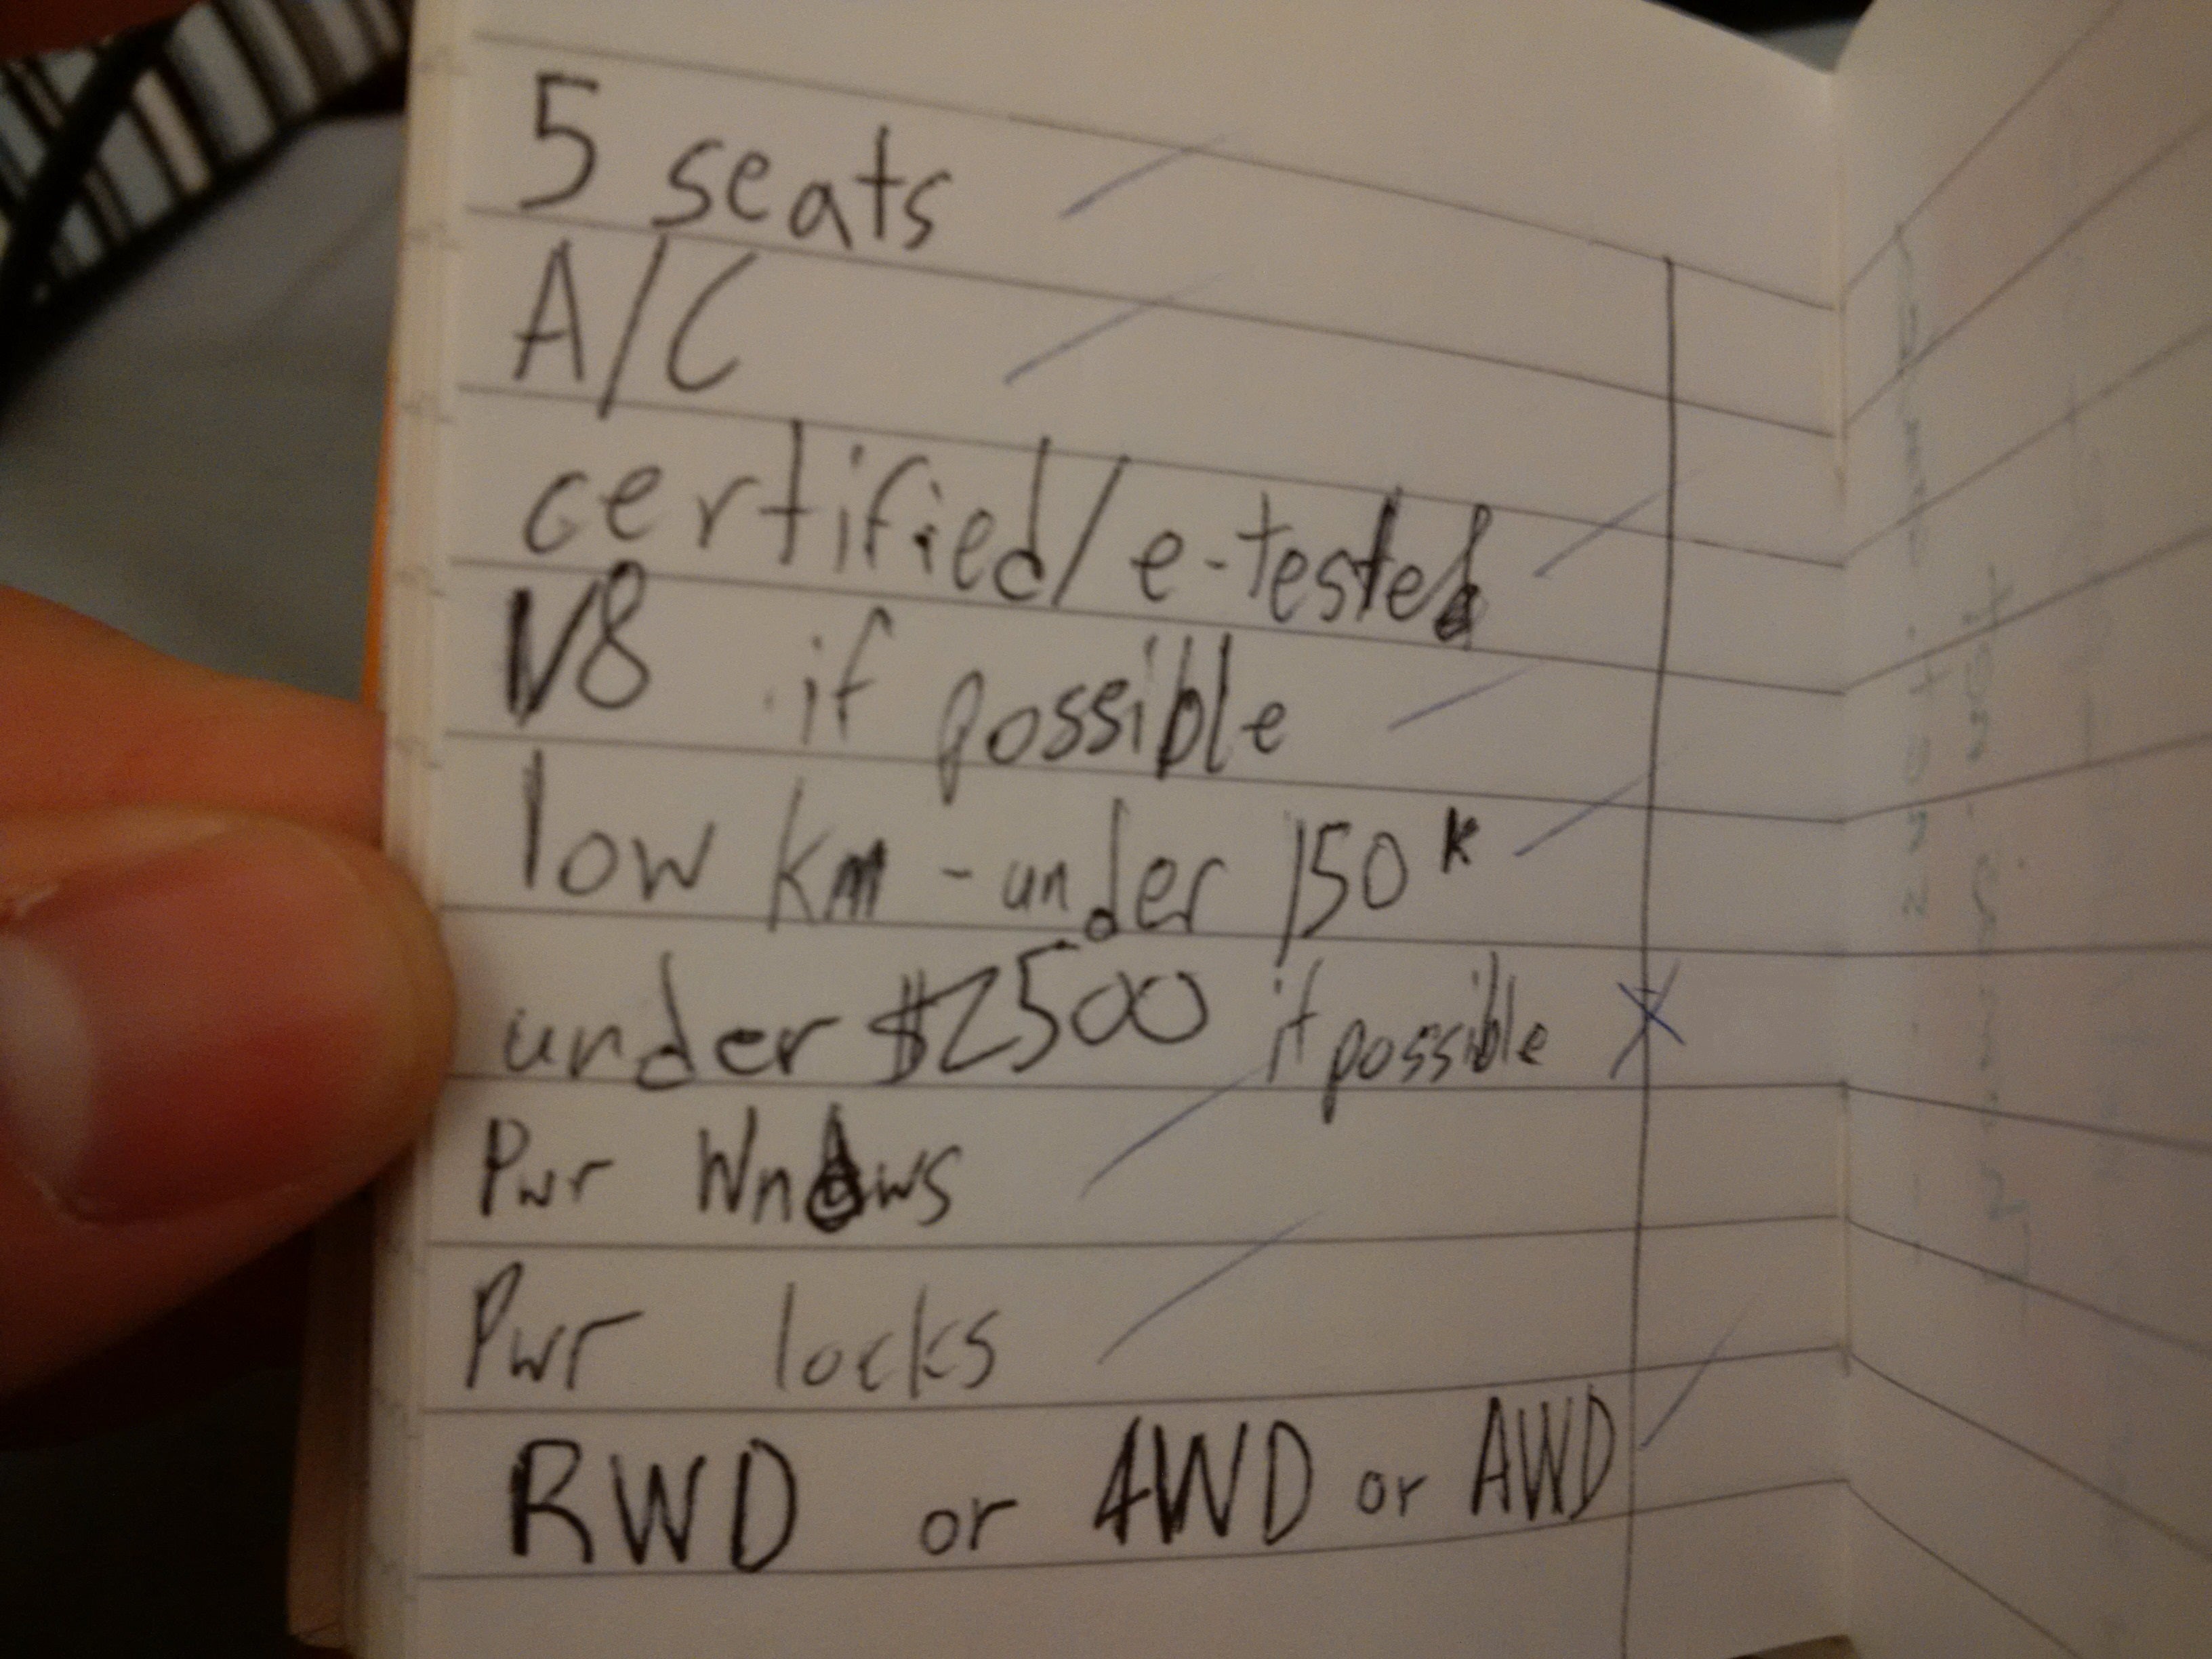 5 seats
A/C
certified/e-tested
V8 if possible
low km - under 150k
under $2500 if possible X
Pwr Wndows
Pwr locks
RWD or 4WD or AWD